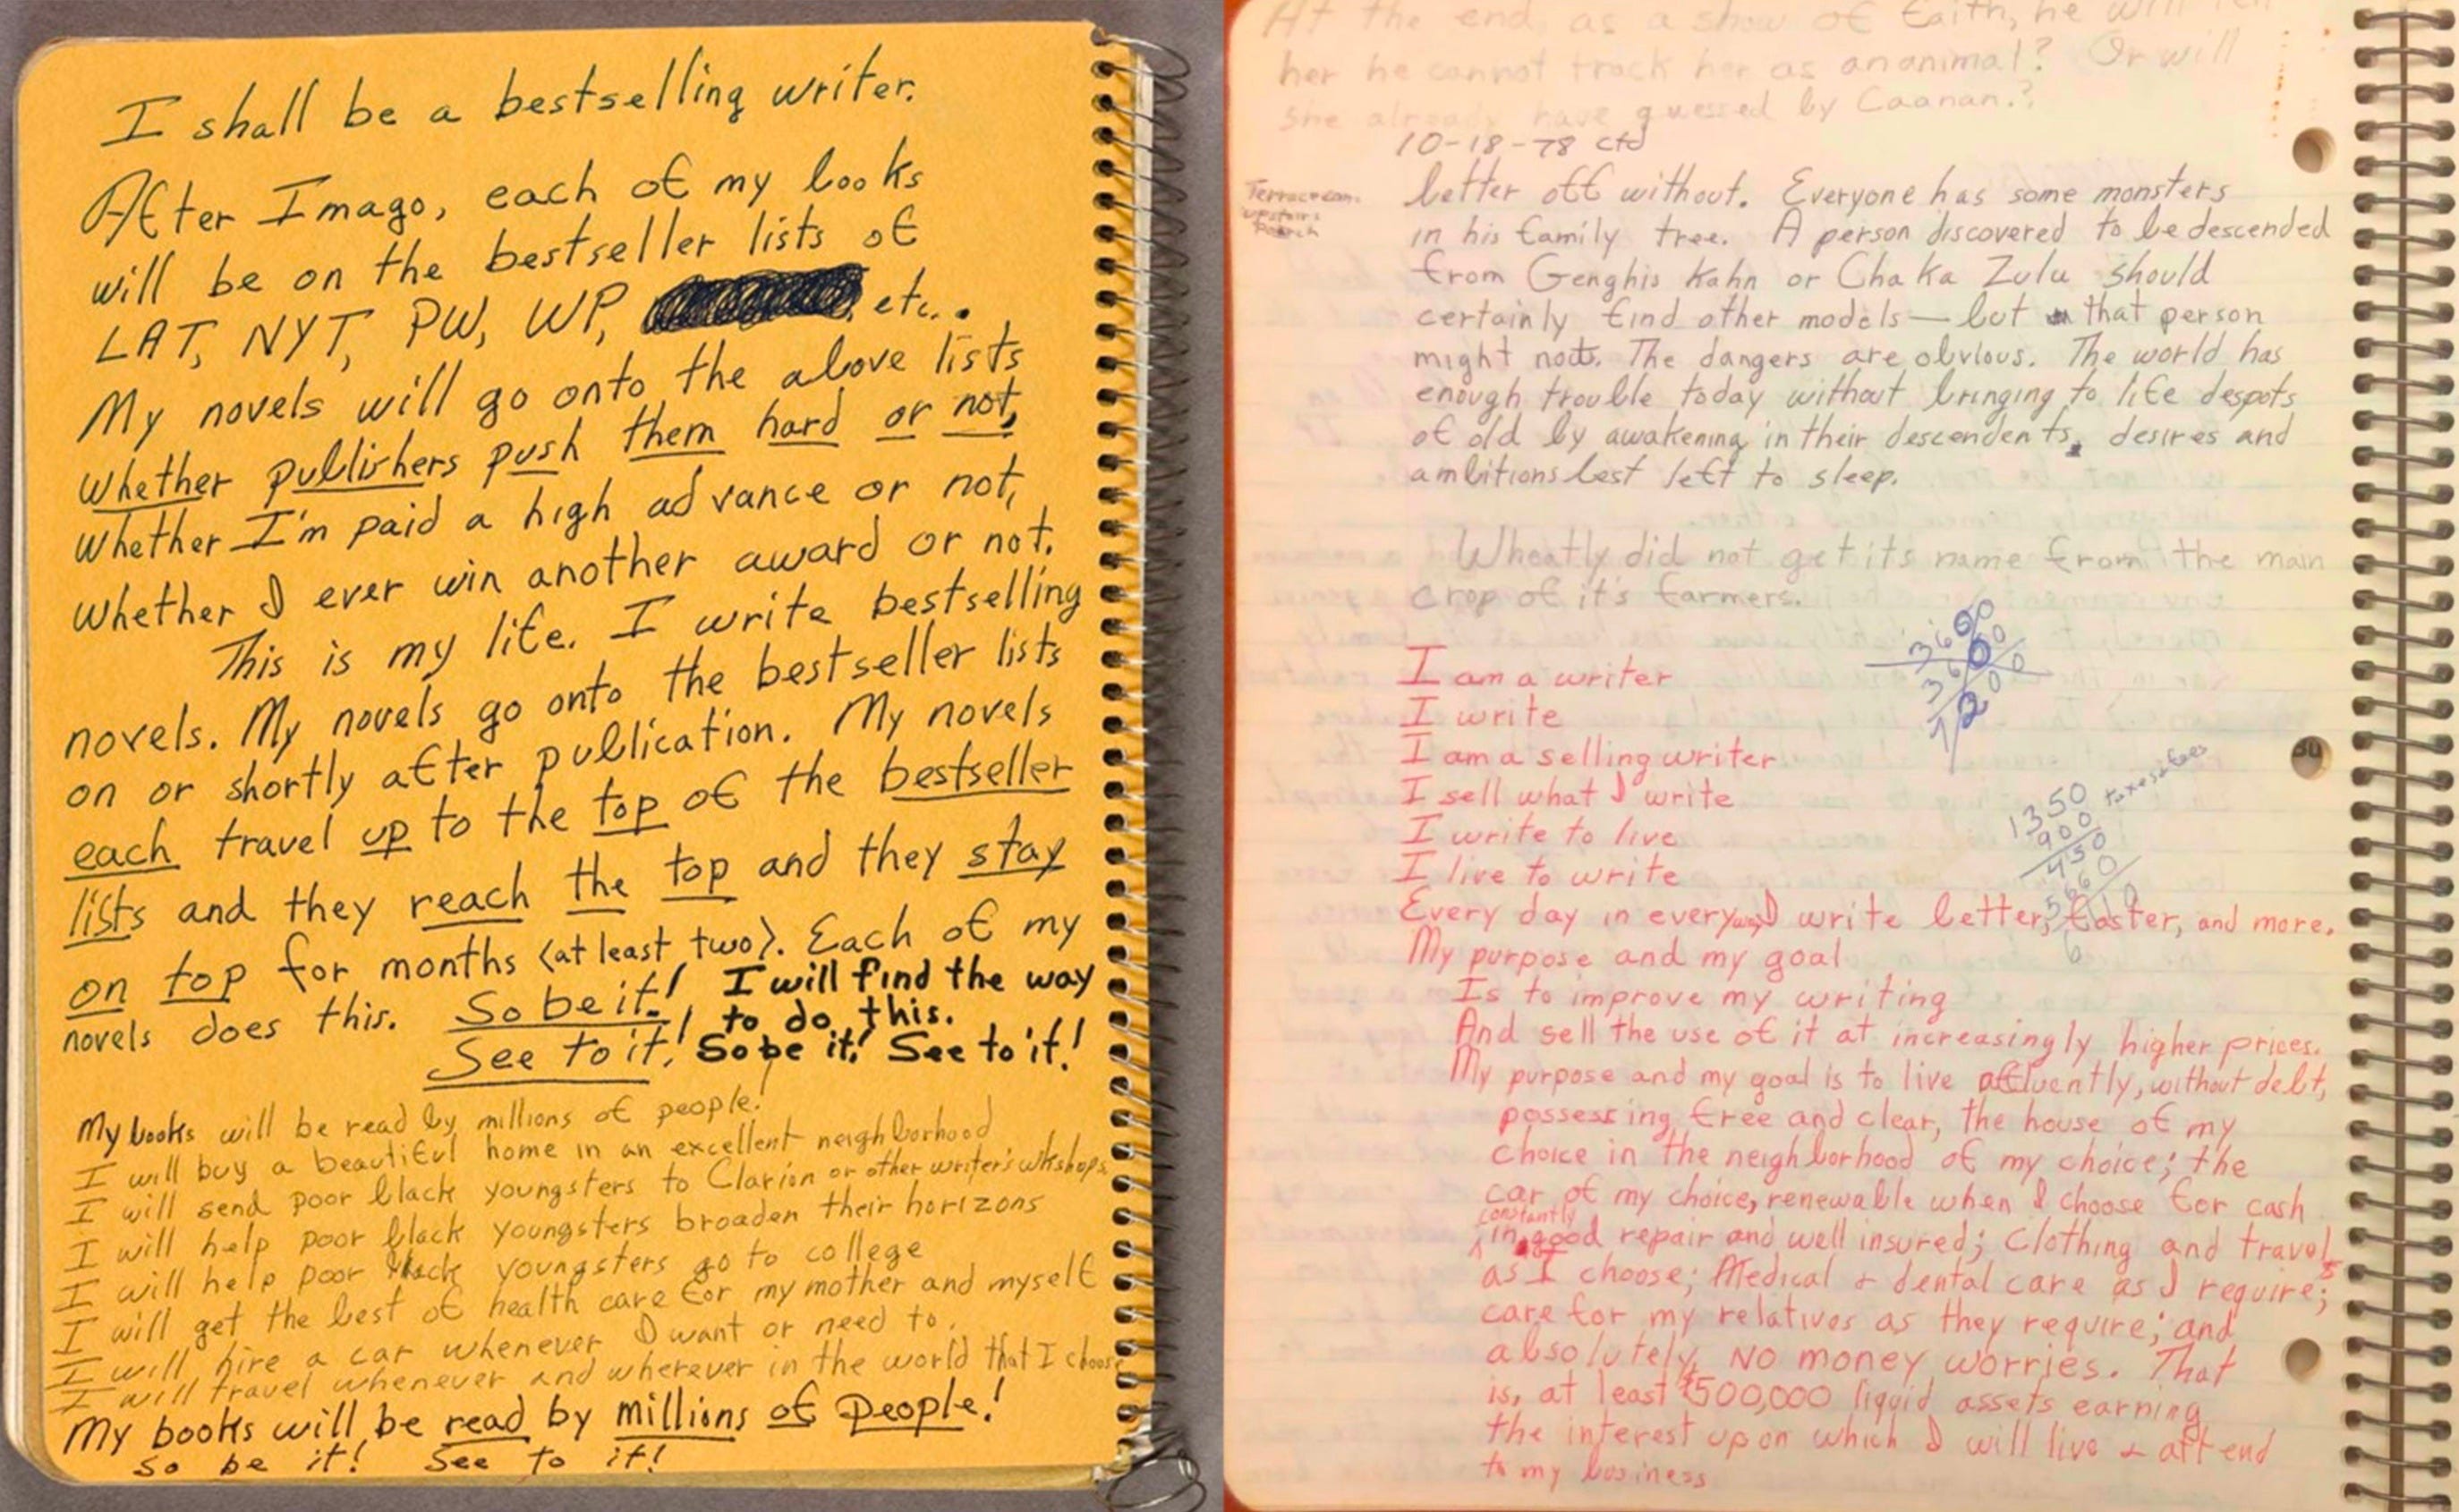 I shall be a bestselling writer.
After Imago, each of my books
will be on the bestseller lists of
LAT, NYT, PW, WP, etc..
My novels will go onto the above lists
whether publishers push them hard or not,
whether I'm paid a high advance or not,
whether I ever win another award or not.
This is my life. I write bestselling
novels. My novels go onto the bestseller lists
on or shortly after publication. My novels
each travel up to the top of the bestseller
lists and they reach the top and they stay
on top for months (at least two). Each of my
novels does this. So be it! I will find the way
to do this.
See to it! So be it! See to it!
My books will be read by millions of people!
I will buy a beautiful home in an excellent neighborhood
I will send poor black youngsters to Clarion or other writer's wkshops
I will help poor black youngsters broaden their horizons
I will help poor black youngsters go to college
I will get the best of health care for my mother and myself
I will hire a car whenever I want or need to.
I will travel whenever and wherever in the world that I choose
My books will be read by millions of people!
So be it! See to it!
At the end, as a show of faith, he will
her he cannot track her as an animal? Or will
she already have guessed by Caanan.?
10-18-78 ctd
Terracrean.
upstairs
Porch
better off without. Everyone has some monsters
in his family tree. A person discovered to be descended
from Genghis Kahn or Chaka Zulu should
certainly find other models — but that person
might not. The dangers are obvious. The world has
enough trouble today without bringing to life despots
of old by awakening in their descendents, desires and
ambitions best left to sleep.
Wheatly did not get its name from the main
crop of it's farmers.
I am a writer
I write
I am a selling writer
I sell what I write
I write to live
I live to write
Every day in every way I write better, faster, and more.
My purpose and my goal
Is to improve my writing
And sell the use of it at increasingly higher prices.
My purpose and my goal is to live affluently, without debt,
possessing free and clear, the house of my
choice in the neighborhood of my choice; the
car of my choice, renewable when I choose for cash
constantly
in good repair and well insured; Clothing and travel
as I choose; Medical + dental care as I require;
care for my relatives as they require; and
absolutely NO money worries. That
is, at least $500,000 liquid assets earning
the interest upon which I will live + attend
to my business
3600
360
1350 taxes+fees
900
450